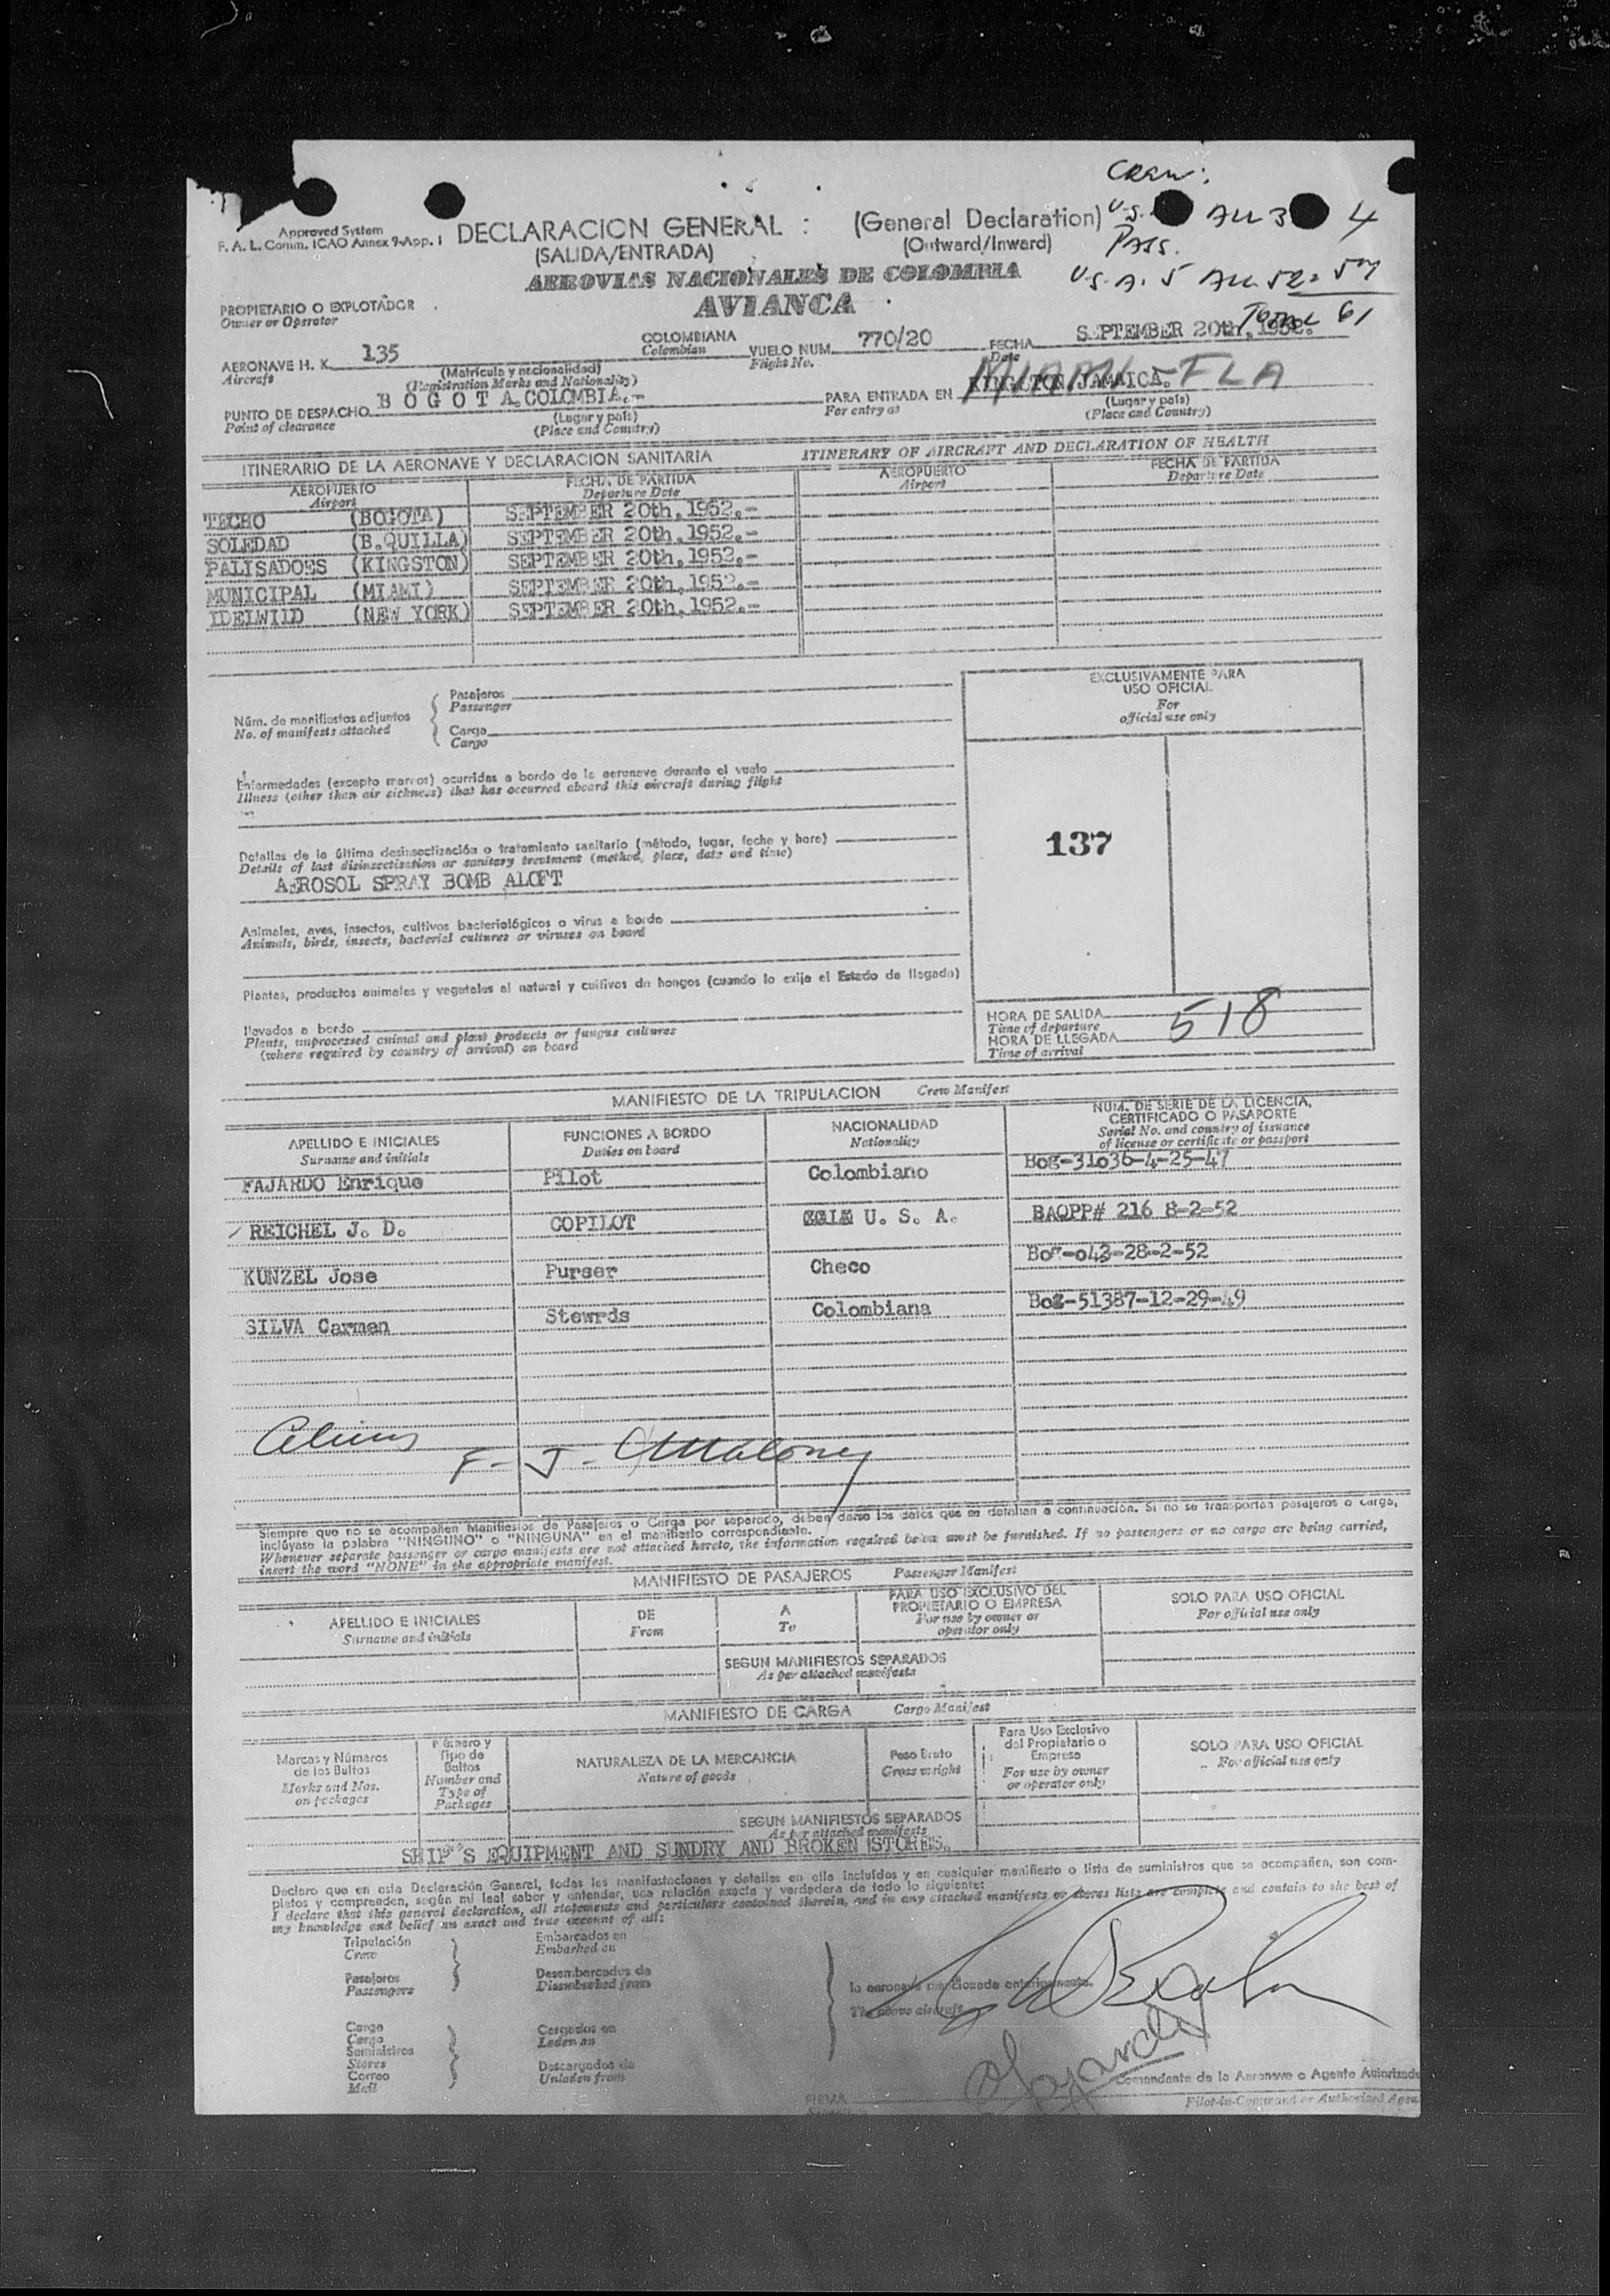 Crew:
Approved System
F. A. L. Comm. ICAO Annex 9-App. 1
DECLARACION GENERAL : (General Declaration)
U.S. Au 3 4
(SALIDA/ENTRADA) (Outward/Inward)
Pass.
AEROVIAS NACIONALES DE COLOMBIA
U.S.A. 5 Au 52 = 57
AVIANCA
Total 61
PROPIETARIO O EXPLOTADOR
Owner or Operator
AERONAVE H. K. 135 COLOMBIANA VUELO NUM. 770/20 FECHA SEPTEMBER 20th, 1952.
Aircraft (Matrícula y nacionalidad) Colombian Flight No. Date
(Registration Marks and Nationality)
MIAMI - FLA
PUNTO DE DESPACHO B O G O T A. COLOMBIA.- PARA ENTRADA EN KINGSTON JAMAICA.
Point of clearance (Lugar y país) For entry at (Lugar y país)
(Place and Country) (Place and Country)
ITINERARIO DE LA AERONAVE Y DECLARACION SANITARIA ITINERARY OF AIRCRAFT AND DECLARATION OF HEALTH
AEROPUERTO FECHA DE PARTIDA AEROPUERTO FECHA DE PARTIDA
Airport Departure Date Airport Departure Date
TECHO (BOGOTA) SEPTEMBER 20th, 1952.-
SOLEDAD (B.QUILLA) SEPTEMBER 20th, 1952.-
PALISADOES (KINGSTON) SEPTEMBER 20th, 1952.-
MUNICIPAL (MIAMI) SEPTEMBER 20th, 1952.-
IDELWILD (NEW YORK) SEPTEMBER 20th, 1952.-
EXCLUSIVAMENTE PARA
USO OFICIAL
For
official use only
Núm. de manifiestos adjuntos
No. of manifests attached
Pasajeros
Passenger
Carga
Cargo
Enfermedades (excepto mareos) ocurridas a bordo de la aeronave durante el vuelo
Illness (other than air sickness) that has occurred aboard this aircraft during flight
137
Detalles de la última desinsectización o tratamiento sanitario (método, lugar, fecha y hora)
Details of last disinsectisation or sanitary treatment (method, place, date and time)
AEROSOL SPRAY BOMB ALOFT
Animales, aves, insectos, cultivos bacteriológicos o virus a bordo
Animals, birds, insects, bacterial cultures or viruses on board
Plantas, productos animales y vegetales al natural y cultivos de hongos (cuando lo exija el Estado de llegada)
llevados a bordo
Plants, unprocessed animal and plant products or fungus cultures
(where required by country of arrival) on board
HORA DE SALIDA
Time of departure
518
HORA DE LLEGADA
Time of arrival
MANIFIESTO DE LA TRIPULACION Crew Manifest
APELLIDO E INICIALES FUNCIONES A BORDO NACIONALIDAD NUM. DE SERIE DE LA LICENCIA,
CERTIFICADO O PASAPORTE
Surname and initials Duties on board Nationality Serial No. and country of issuance
of license or certificate or passport
FAJARDO Enrique Pilot Colombiano Bog-31036-4-25-47
REICHEL J. D. COPILOT U. S. A. BAQPP# 216 8-2-52
KUNZEL Jose Purser Checo Bog-043-28-2-52
SILVA Carmen Stewrds Colombiana Bog-51387-12-29-49
F. J. O'Maloney
Siempre que no se acompañen Manifiestos de Pasajeros o Carga por separado, deben darse los datos que se detallan a continuación. Si no se transportan pasajeros o carga,
inclúyase la palabra "NINGUNO" o "NINGUNA" en el manifiesto correspondiente.
Whenever separate passenger or cargo manifests are not attached hereto, the information required below must be furnished. If no passengers or no cargo are being carried,
insert the word "NONE" in the appropriate manifest.
MANIFIESTO DE PASAJEROS Passenger Manifest
APELLIDO E INICIALES DE A PARA USO EXCLUSIVO DEL
PROPIETARIO O EMPRESA SOLO PARA USO OFICIAL
Surname and initials From To For use by owner or
operator only For official use only
SEGUN MANIFIESTOS SEPARADOS
As per attached manifests
MANIFIESTO DE CARGA Cargo Manifest
Marcas y Números
de los Bultos
Marks and Nos.
on packages
Número y
Tipo de
Bultos
Number and
Type of
Packages
NATURALEZA DE LA MERCANCIA
Nature of goods
Peso Bruto
Gross weight
Para Uso Exclusivo
del Propietario o
Empresa
For use by owner
or operator only
SOLO PARA USO OFICIAL
For official use only
SEGUN MANIFIESTOS SEPARADOS
As per attached manifests
SHIP'S EQUIPMENT AND SUNDRY AND BROKEN STORES.
Declaro que en esta Declaración General, todas las manifestaciones y detalles en ella incluídos y en cualquier manifiesto o lista de suministros que se acompañen, son com-
pletos y comprenden, según mi leal saber y entender, una relación exacta y verdadera de todo lo siguiente:
I declare that this general declaration, all statements and particulars contained therein, and in any attached manifests or stores lists are complete and contain to the best of
my knowledge and belief an exact and true account of all:
Tripulación
Crew
Pasajeros
Passengers
Embarcados en
Embarked on
Desembarcados de
Disembarked from
la aeronave mencionada anteriormente.
The above aircraft
Carga
Cargo
Suministros
Stores
Correo
Mail
Cargados en
Laden on
Descargados de
Unladen from
Fajardo
Comandante de la Aeronave o Agente Autorizado
FIRMA
Pilot-in-Command or Authorized Agent